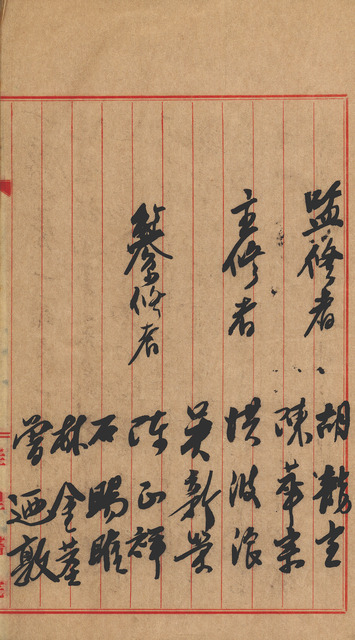 監修者 胡龍宝
陳華宗
主修者 洪波浪
吳新榮
纂修者 陳正祥
石暘睢
林金莖
曾迺敦